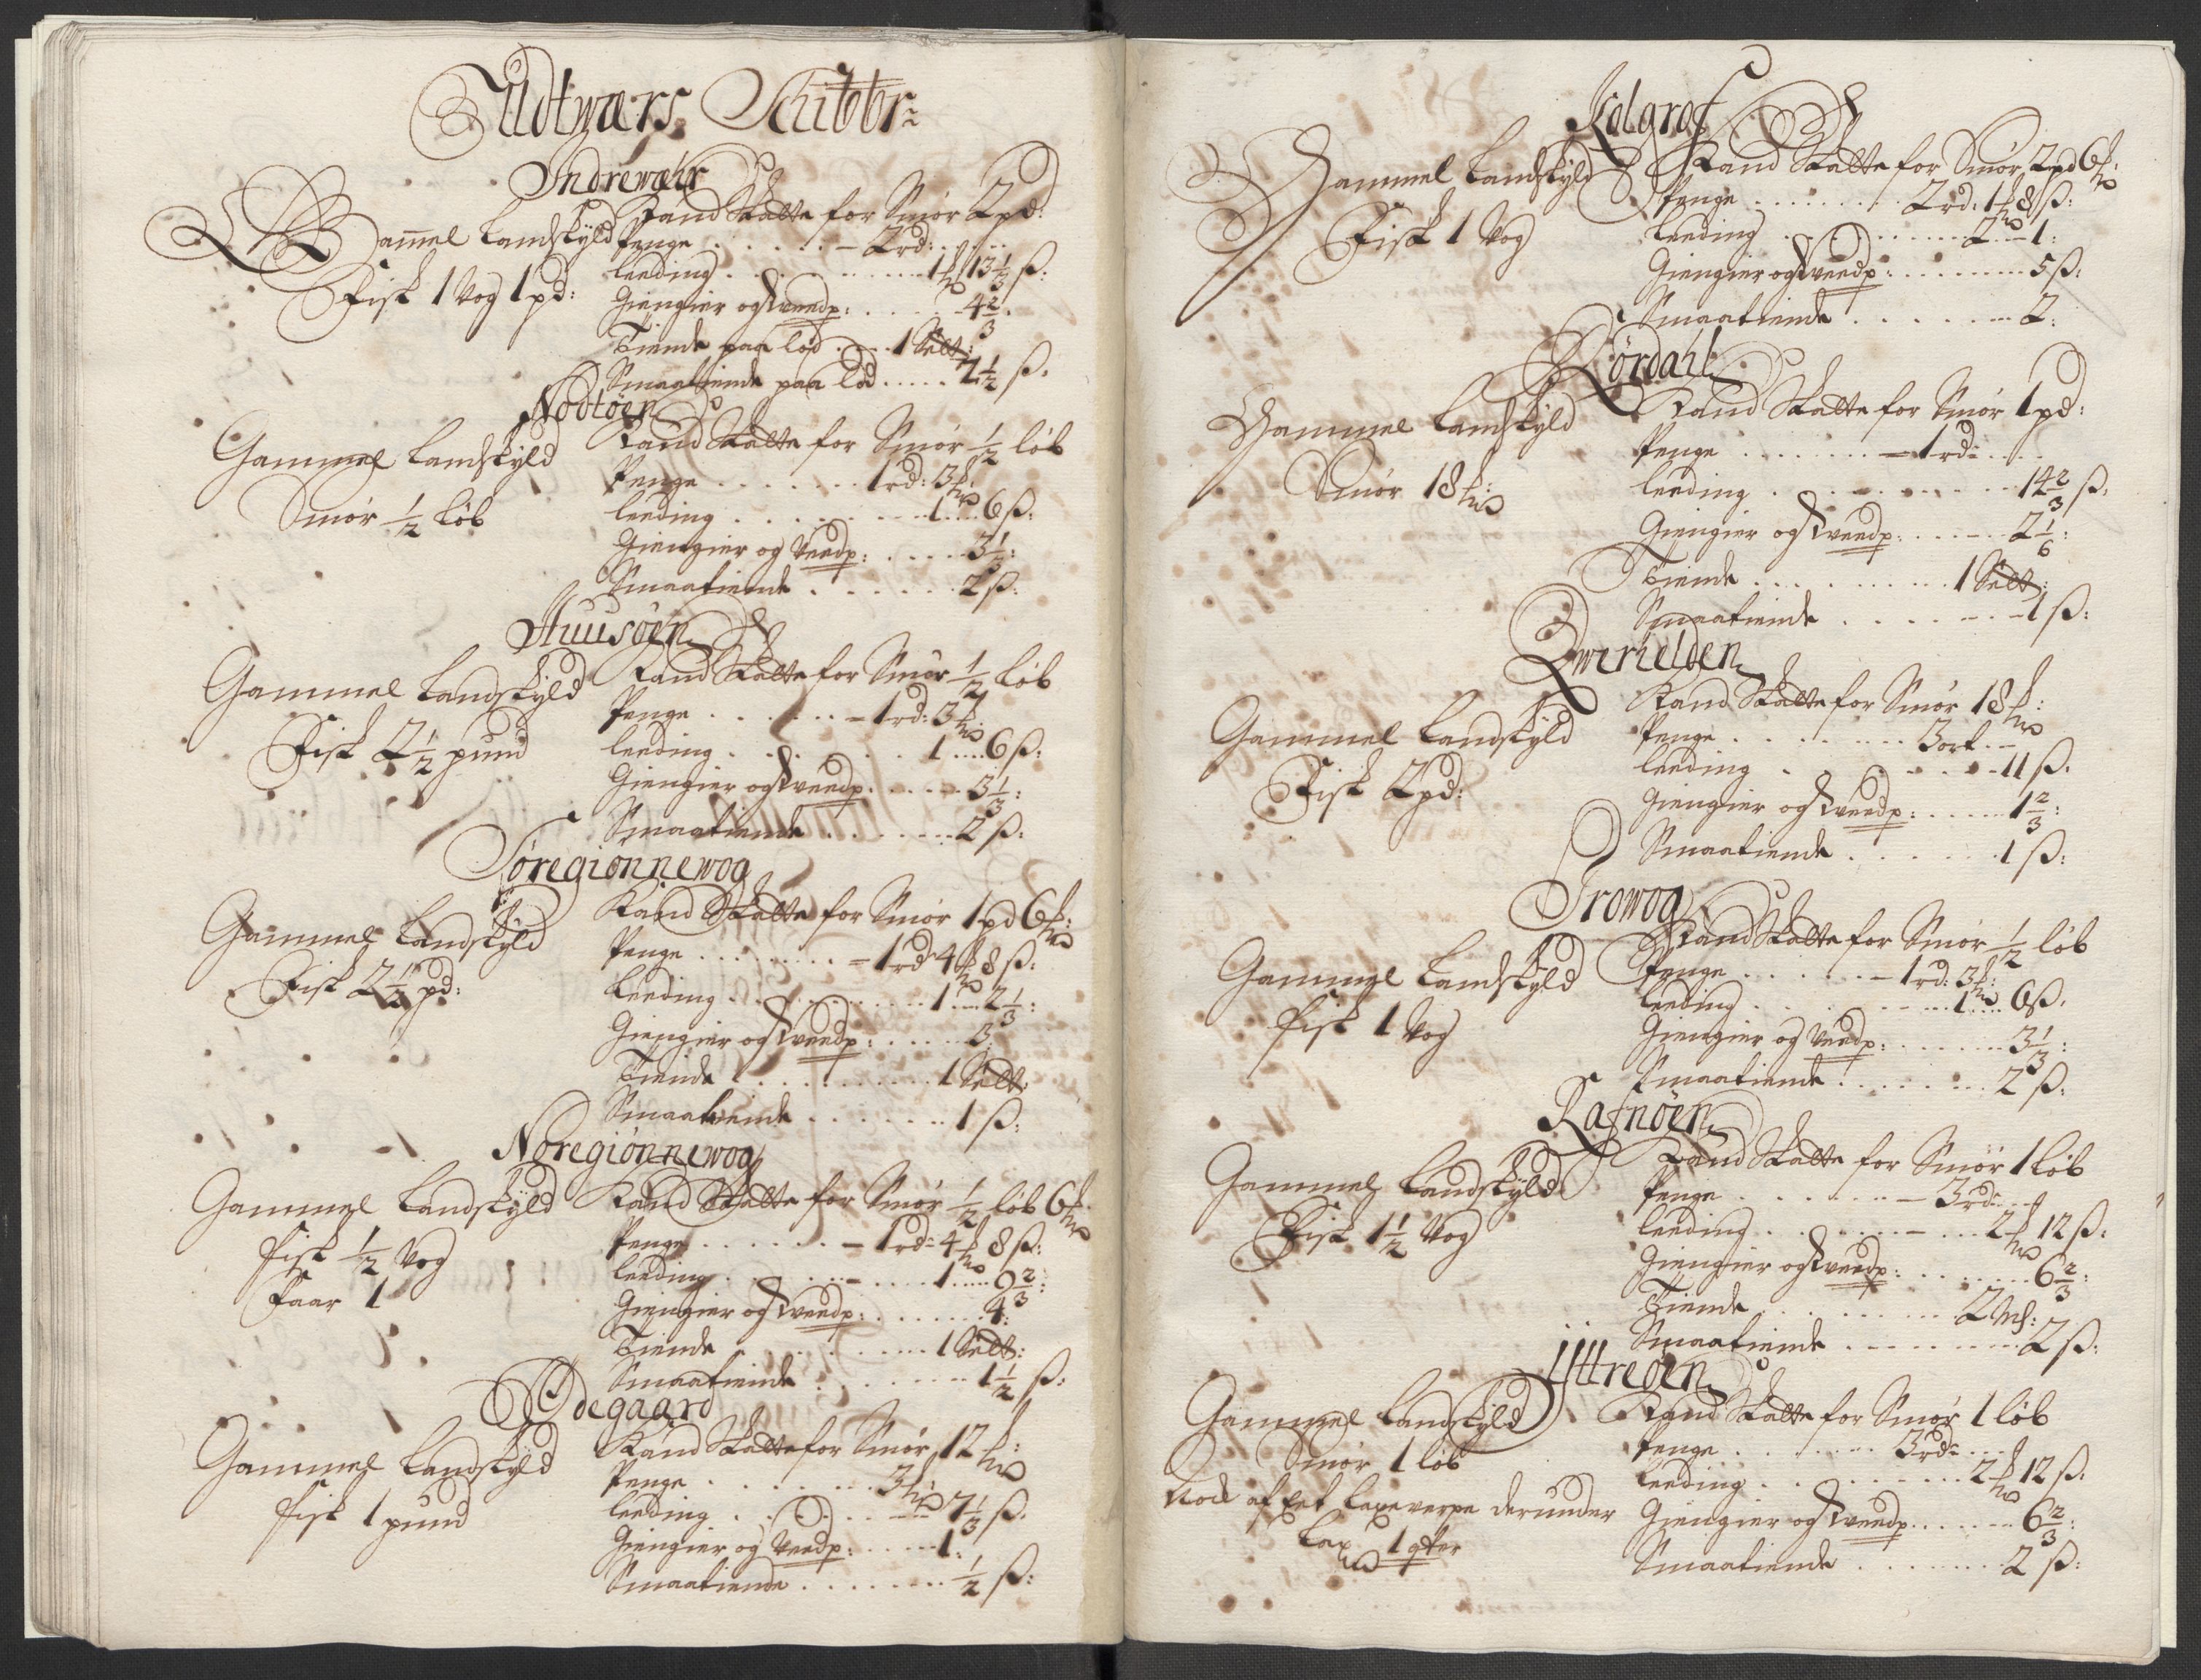 Udtwærs Schibbr:
Indrewehr
Gammel Landskyld
Fisk 1 Vog 1 pd:
Rand Skatte for Smør 2 pd:
Penge - 2 rd:
Leeding 1 13 1/3 ß:
Giengier og Tveedp: 4 2/3
Tiende paa lod 1 Selt:
Smaatiende paa lod 1 1/2 ß:
Nodtøen
Gammel Landskyld
Smør 1/2 Løb
Rand Skatte for Smør 1/2 løb
Penge 1 rd: 3
Leeding 1 6 ß:
Giengier og Veedp: 3 1/3:
Smaatiende 2 ß:
Huusøen
Gammel Landskyld
Fisk 2 1/2 pund
Rand Skatte for Smør 1/2 Løb
Penge - 1 rd: 3
Leeding 1 6 ß:
Giengier og Tveedp: 3 1/3:
Smaatiende 2 ß:
Søregionnewog
Gammel Landskyld
Fisk 2 1/2 pd:
Rand Skatte for Smør 1 pd 6
Penge - 1 rd 4 8 ß:
Leeding 1 2 1/3:
Giengier og Tveedp: 3
Tiende 1 Selt:
Smaatiende 1 ß:
Noregionnewog
Gammel Landskyld
Fisk 1/2 Vog
Faar 1
Rand Skatte for Smør 1/2 løb 6
Penge - 1 rd: 4 8 ß:
Leeding 1 9 2/3:
Giengier og Tveedp: 4:
Tiende 1 Selt:
Smaatiende 1 1/2 ß:
Ødegaard
Gammel Landskyld
Fisk 1 pund
Rand Skatte for Smør 12
Penge 3
Leeding 7 1/3 ß:
Giengier og Veedp: 1:
Smaatiende 1/2 ß:
Kolgrof
Gammel Landskyld
Fisk 1 Vog
Rand Skatte for Smør 2 pd 6
Penge 2 rd: 1 8 ß:
Leeding 2 - 1:
Giengier og Tveedp: 5 ß:
Smaatiende 2:
Rørdahl
Gammel Landskyld
Smør 18
Rand Skatte for Smør 1 pd:
Penge - 1 rd:
Leeding 14 2/3 ß:
Giengier og Tveedp: 2 1/6:
Tiende 1 Selt:
Smaatiende 1 ß:
Zwerielden
Gammel Landskyld
Fisk 2 pd:
Rand Skatte for Smør 18
Penge 3 ort
Leeding 11 ß:
Giengier og Tveedp: 1 2/3:
Smaatiende 1 ß:
Trowog
Gammel Landskyld
Fisk 1 Vog
Rand Skatte for Smør 1/2 løb
Penge - 1 rd: 3
Leeding 1 6 ß:
Giengier og Veedp: 3 1/3:
Smaatiende 2 ß:
Rafnøen
Gammel Landskyld
Fisk 1 1/2 Vog
Rand Skatte for Smør 1 Løb
Penge - 3 rd:
Leeding 2 12 ß:
Giengier og Tveedp: 6 2/3:
Tiende 2
Smaatiende 2 ß:
Ittreøen
Gammel Landskyld
Smør 1 løb
Nock af Eet Laxeverpe derunder
Lax 1 qter
Rand Skatte for Smør 1 løb
Penge 3 rd:
Leeding 2 12 ß:
Giengier og Tveedp 6 2/3:
Smaatiende 2 ß: